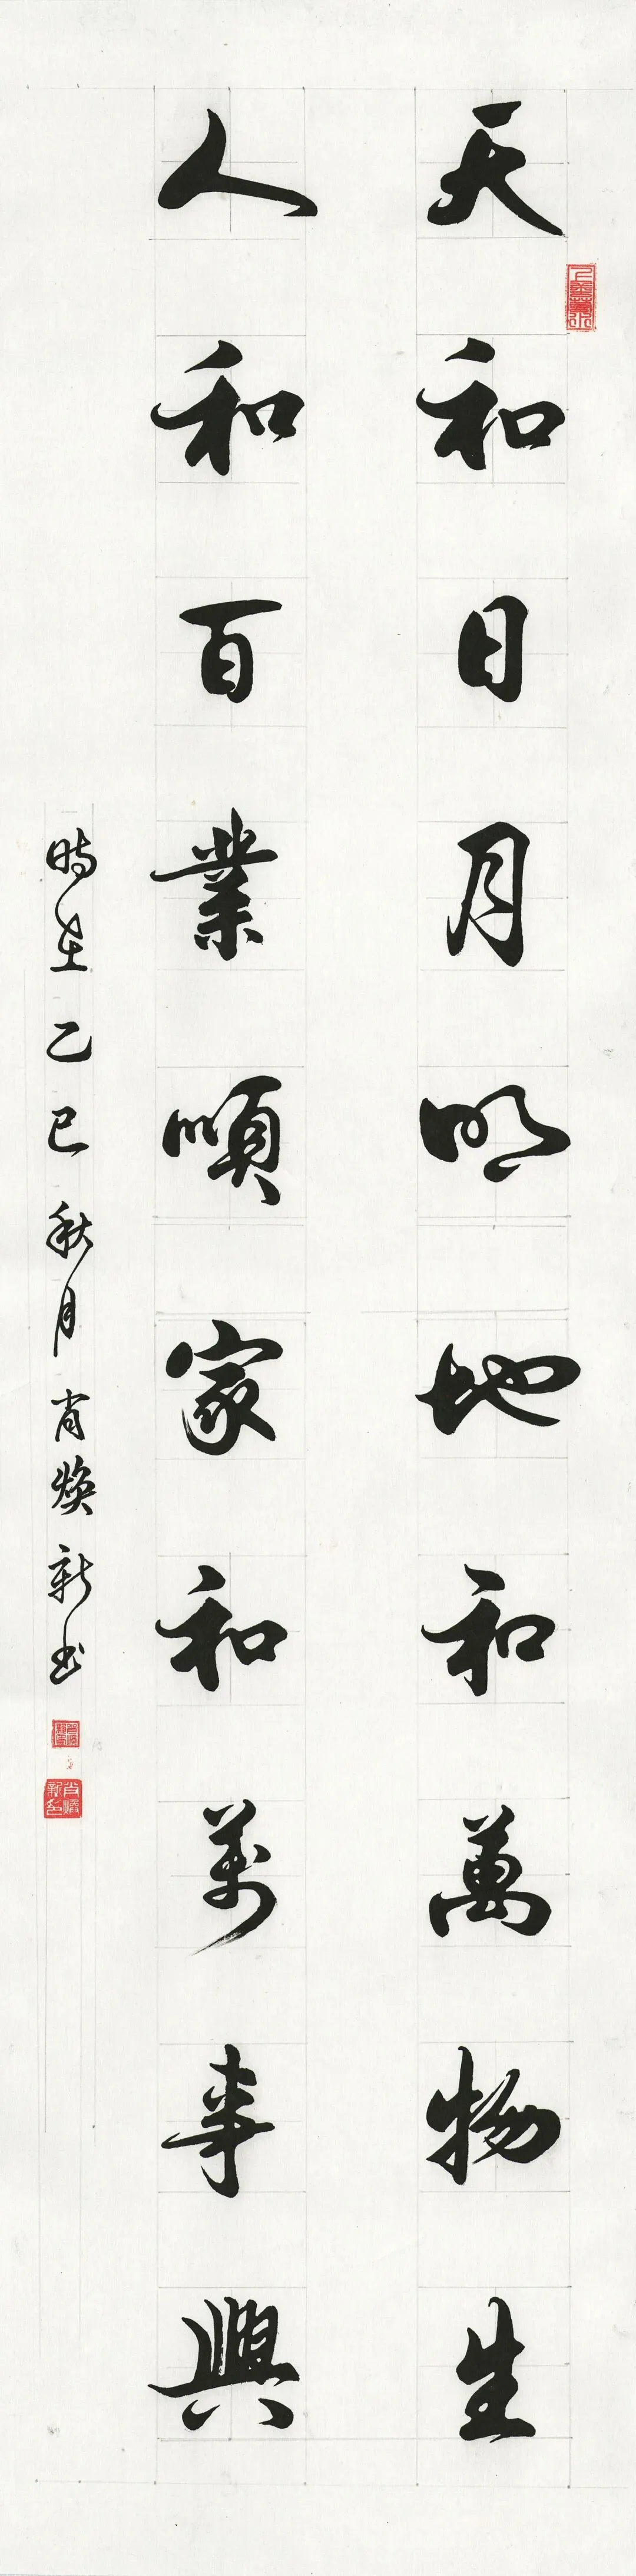 天和日月明地和萬物生
人和百業順家和萬事興
時在乙巳秋月肖煥新书